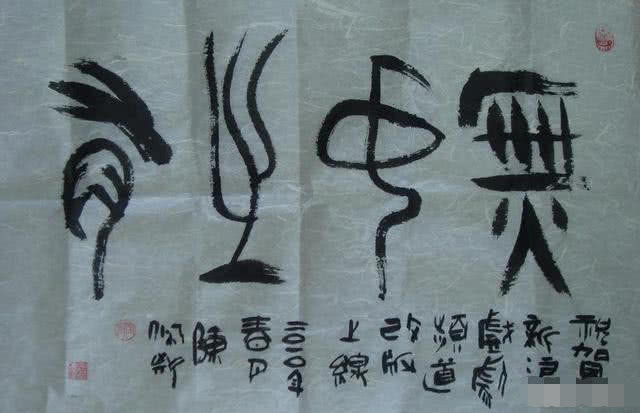 無中生有
祝賀
新浪
戲劇
頻道
改版
上線
二〇一〇年
春月
陳
佩斯